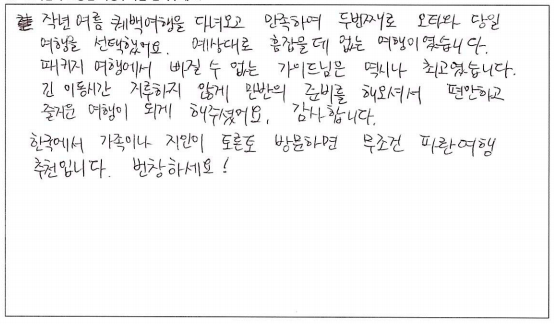 작년 여름 퀘백여행을 다녀오고 만족하여 두번째로 오타와 당일
여행을 선택했어요. 예상대로 흠잡을데 없는 여행이였습니다.
패키지 여행에서 빠질 수 없는 가이드님은 역시나 최고였습니다.
긴 이동시간 지루하지 않게 만반의 준비를 해오셔서 편안하고
즐거운 여행이 되게 해주셨어요. 감사합니다.
한국에서 가족이나 지인이 토론토 방문하면 무조건 파란여행
추천입니다. 번창하세요!